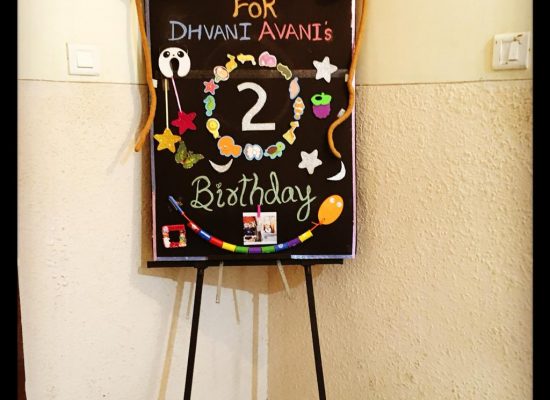 FOR
DHVANI AVANI's
2
Birthday